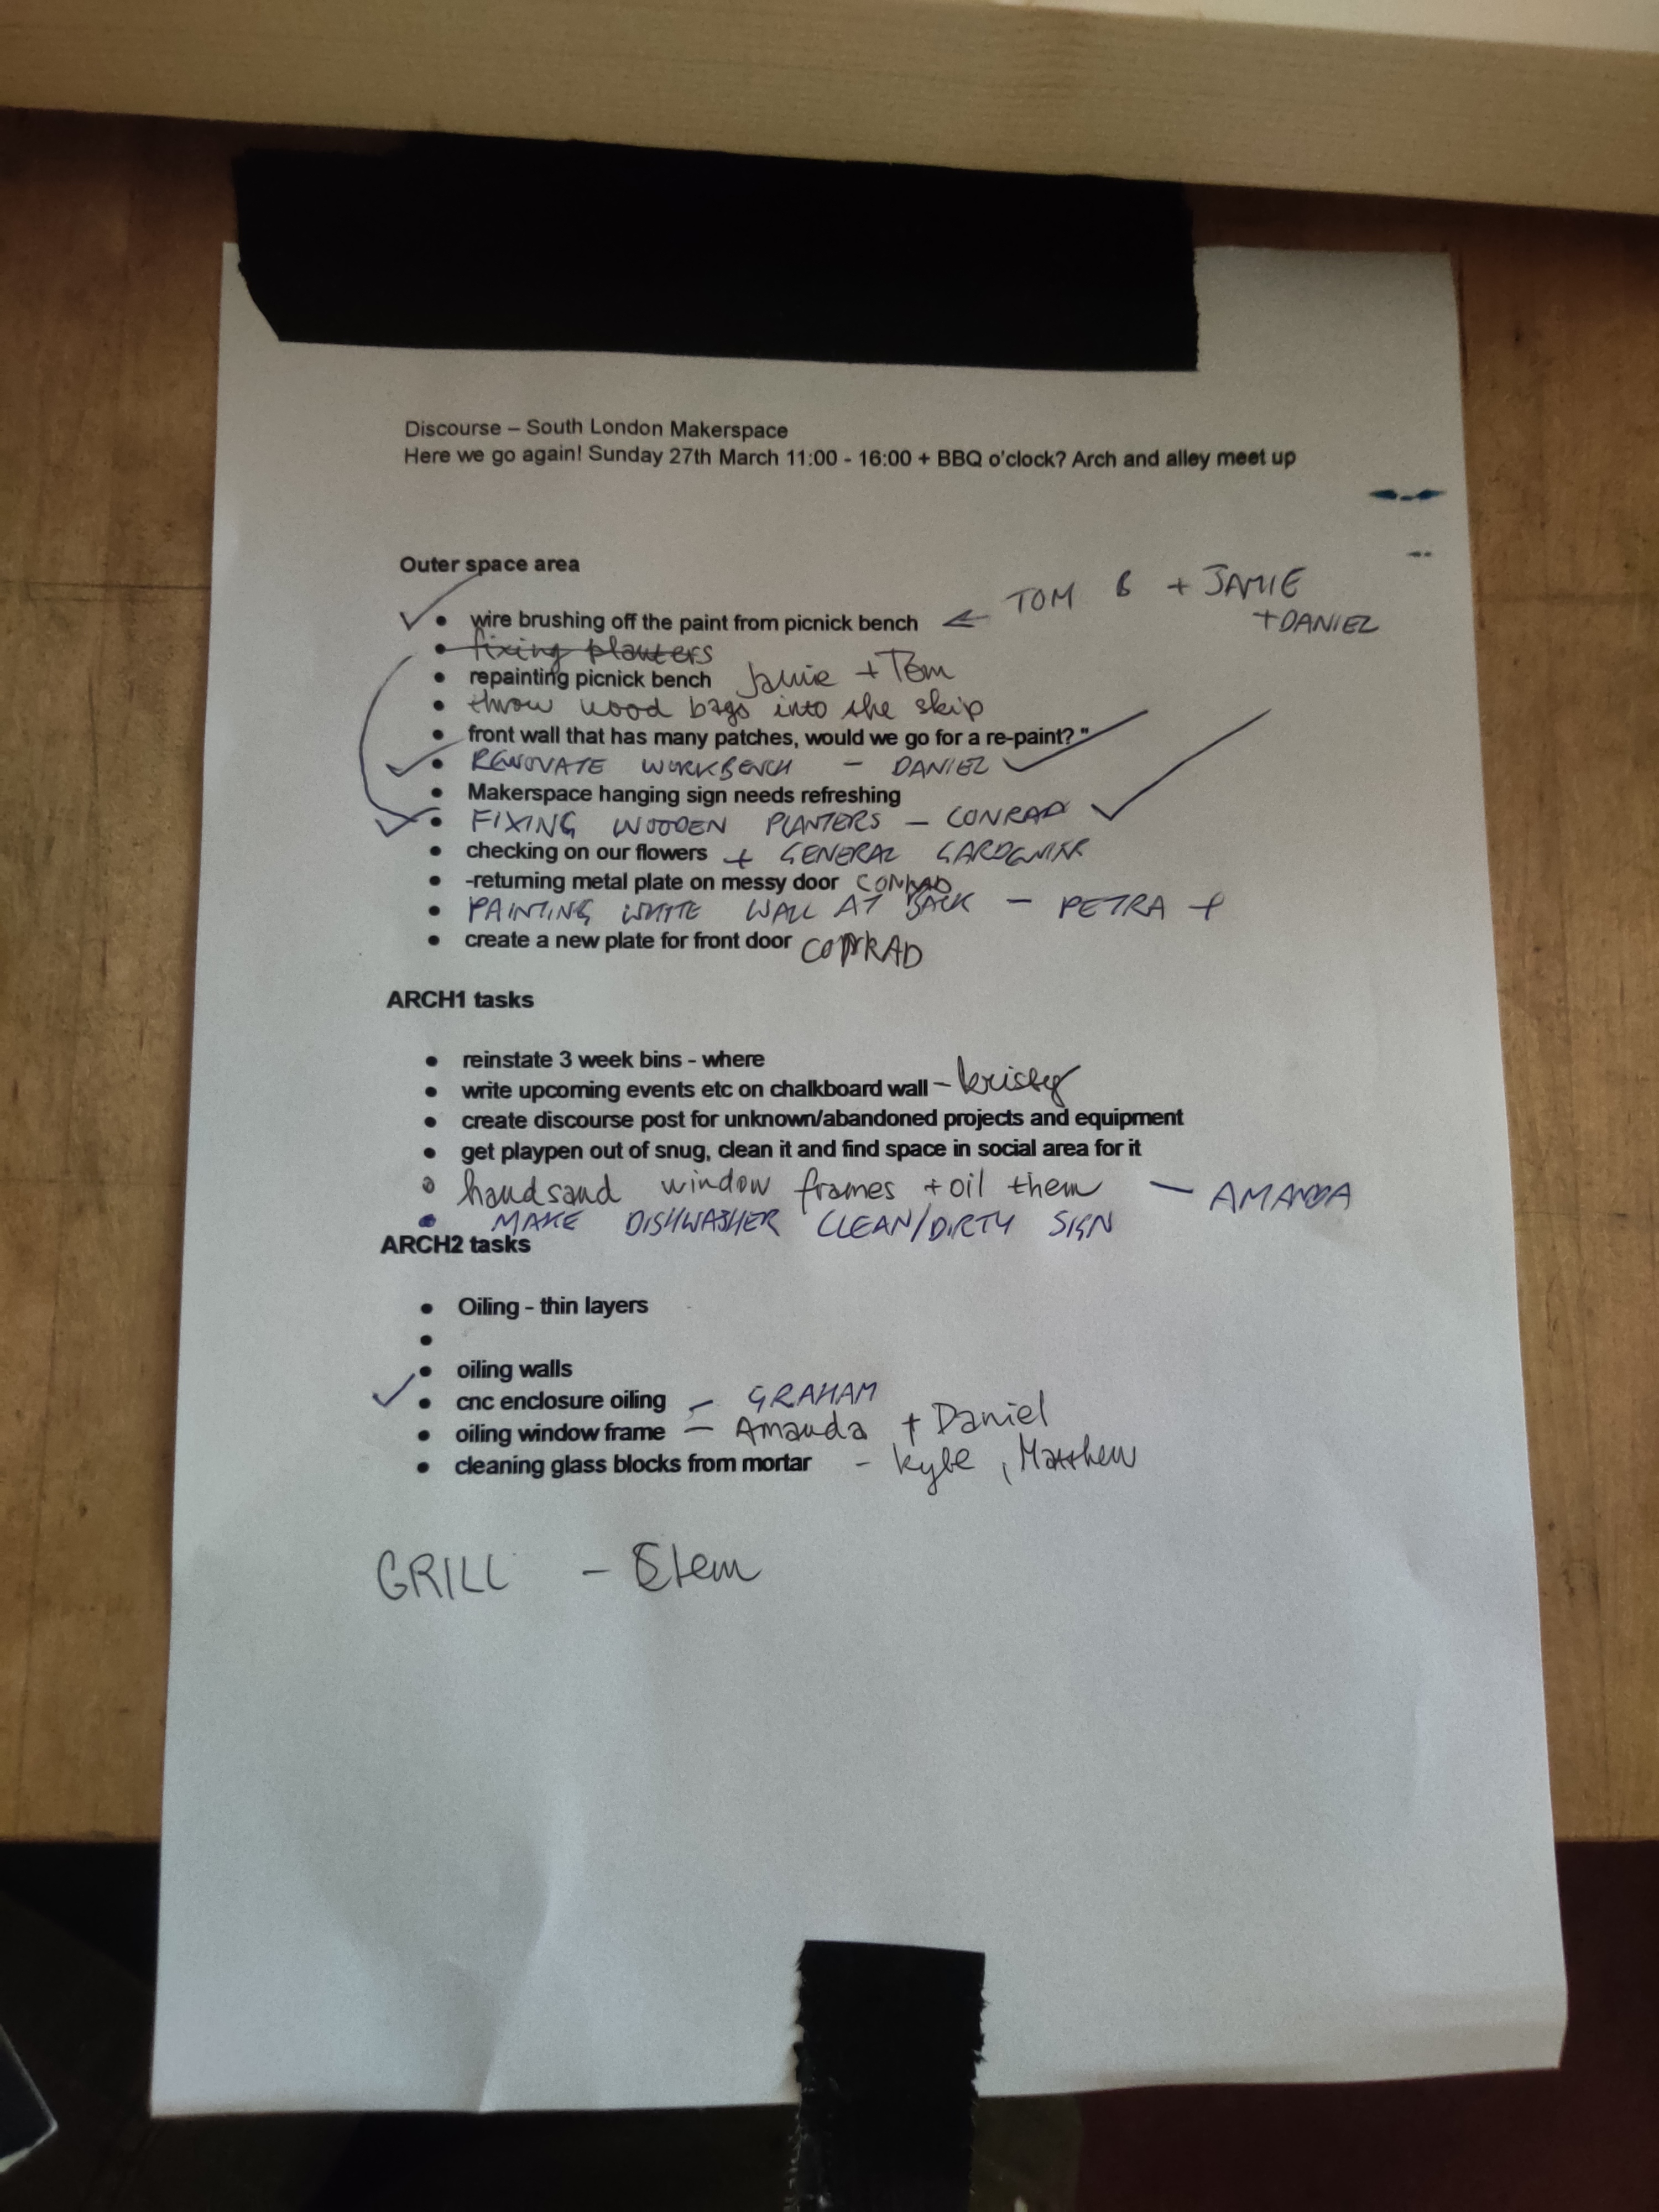 Discourse – South London Makerspace
Here we go again! Sunday 27th March 11:00 - 16:00 + BBQ o'clock? Arch and alley meet up
Outer space area
TOM B + JAMIE
• wire brushing off the paint from picnick bench ← +DANIEL
• fixing planters
• repainting picnick bench Jamie + Tom
• throw wood bags into the skip
• front wall that has many patches, would we go for a re-paint? "
• RENOVATE WORKBENCH - DANIEL ✓
• Makerspace hanging sign needs refreshing
• FIXING WOODEN PLANTERS - CONRAD ✓
• checking on our flowers + GENERAL
• -returning metal plate on messy door CONRAD
• PAINTING WHITE WALL AT BACK - PETRA +
• create a new plate for front door CONRAD
ARCH1 tasks
• reinstate 3 week bins - where
• write upcoming events etc on chalkboard wall - kristy
• create discourse post for unknown/abandoned projects and equipment
• get playpen out of snug, clean it and find space in social area for it
• handsand window frames + oil them - AMANDA
• MAKE DISHWASHER CLEAN/DIRTY SIGN
ARCH2 tasks
• Oiling - thin layers
•
• oiling walls
• cnc enclosure oiling - GRAHAM
• oiling window frame - Amanda + Daniel
• cleaning glass blocks from mortar - , Matthew
GRILL -